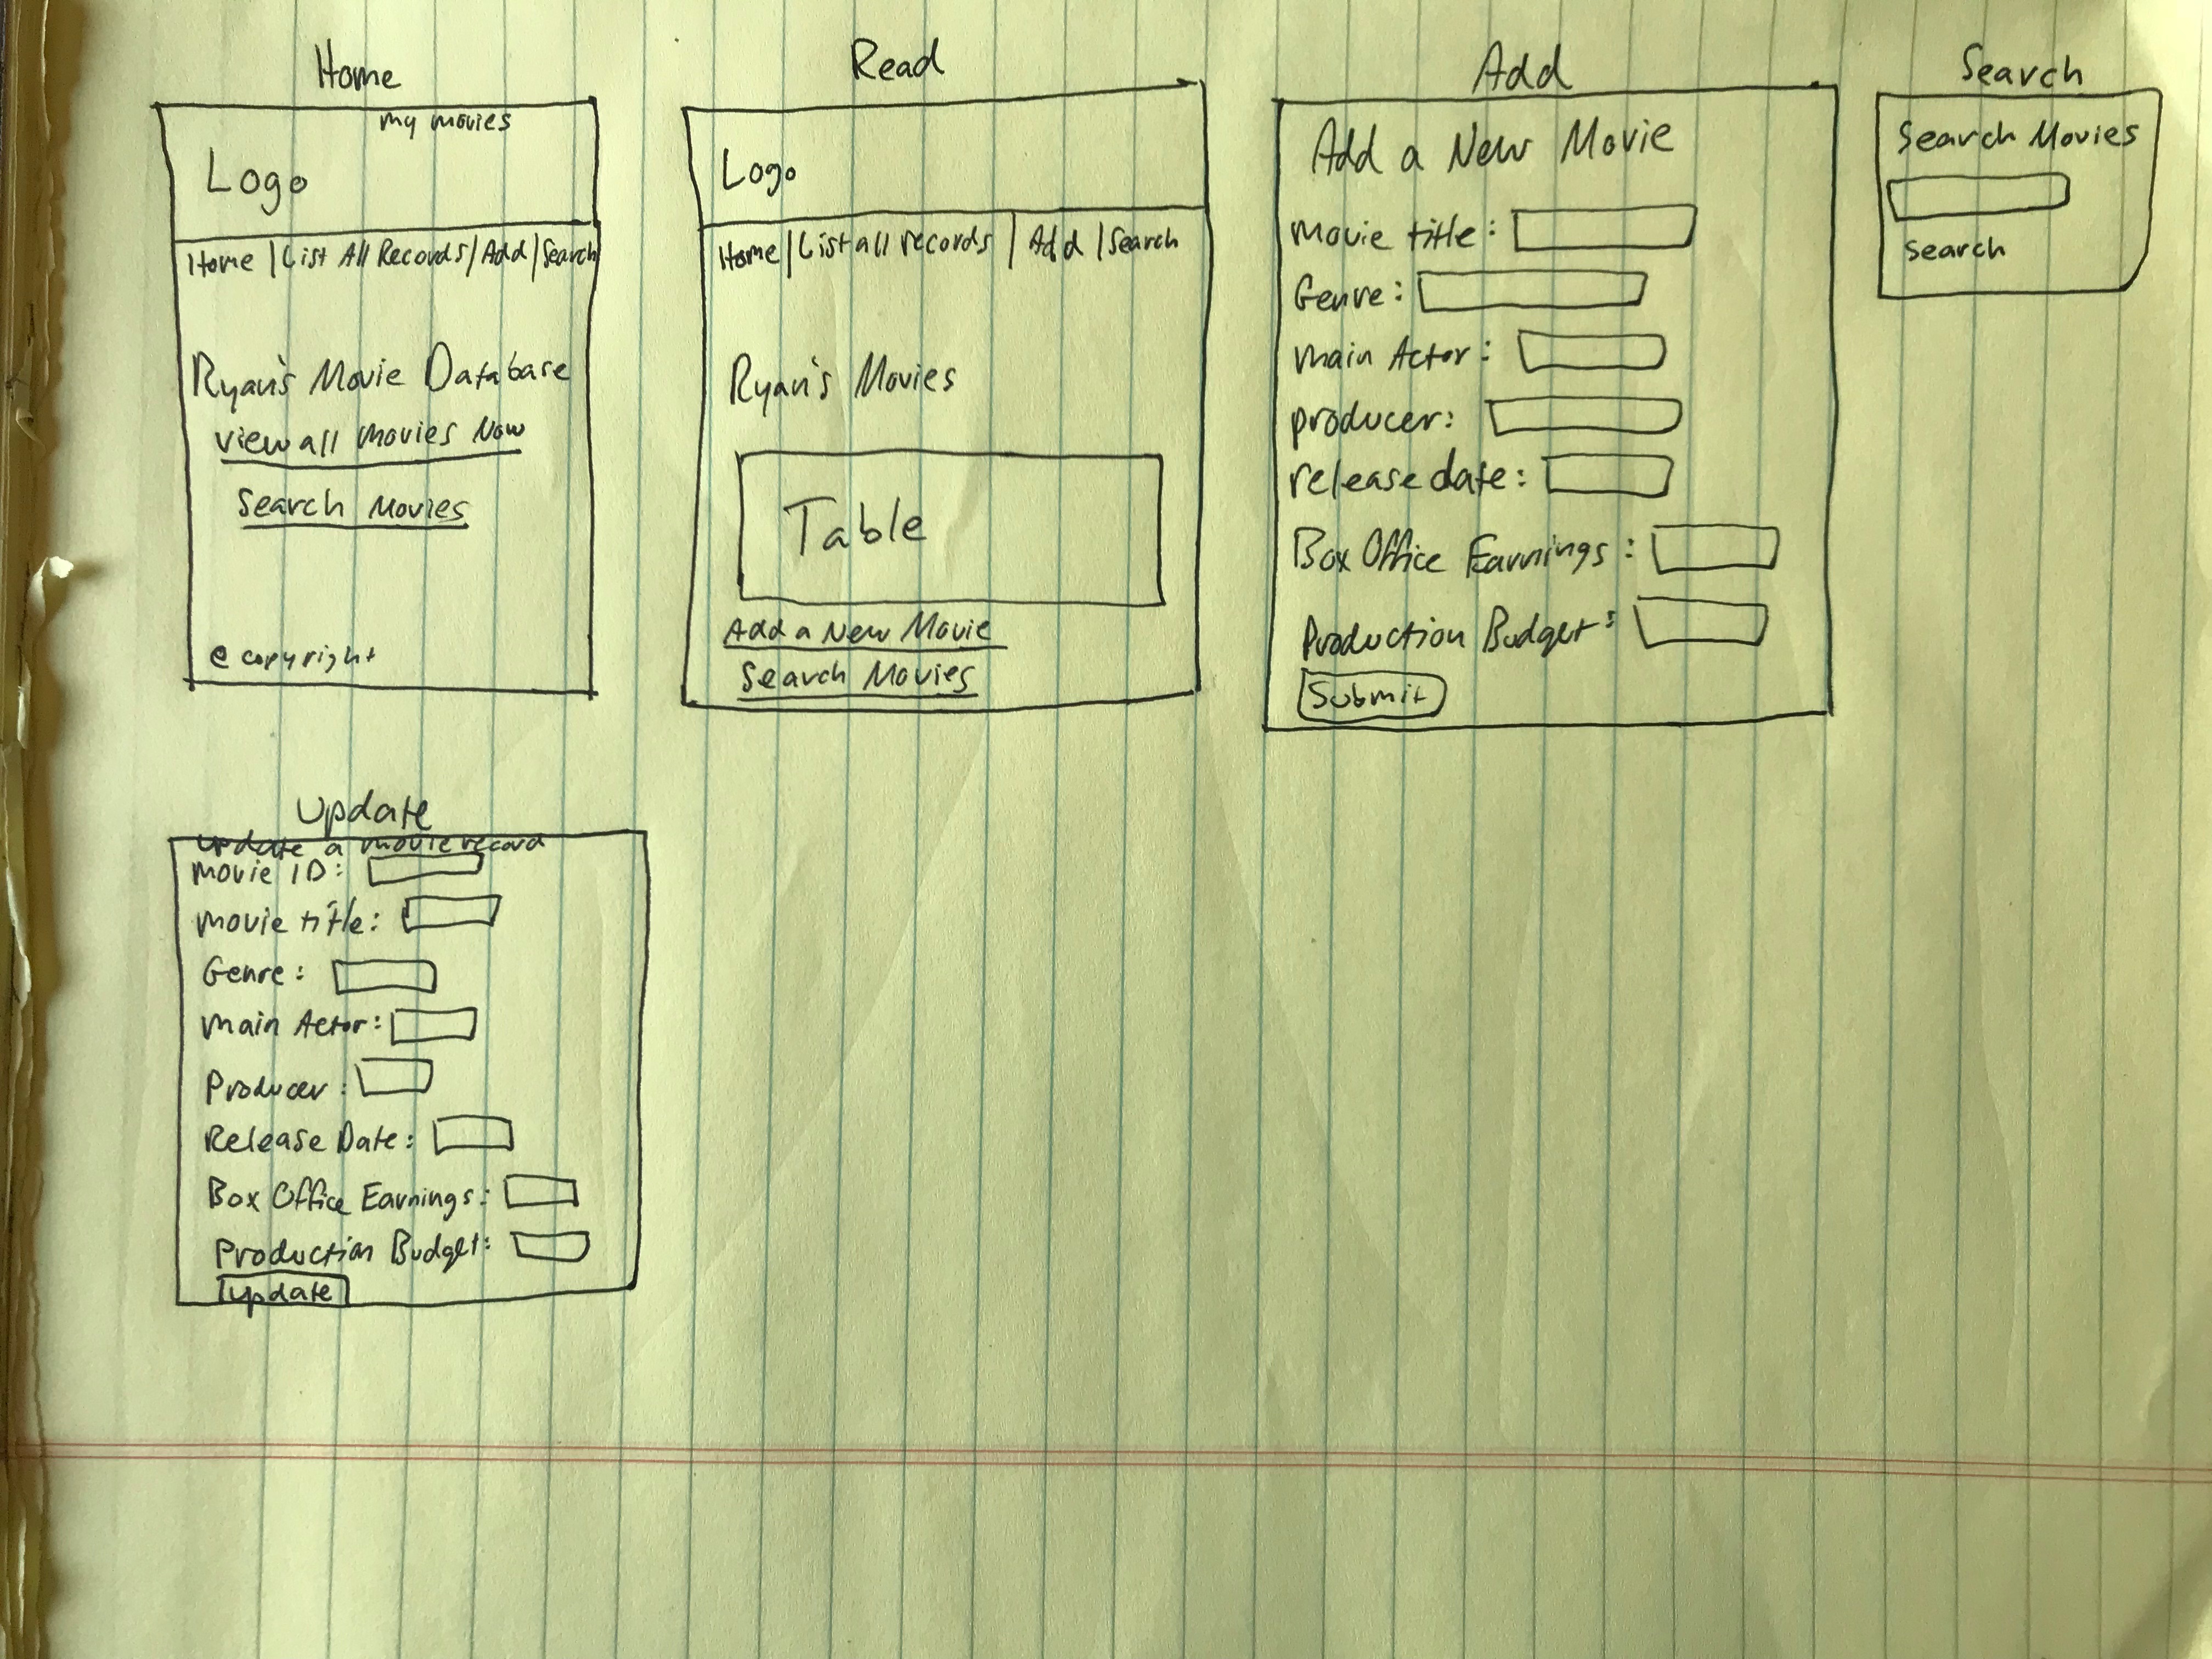 Home
my movies
Logo
Home | List All Records | Add | Search
Ryan's Movie Database
View all movies Now
Search Movies
© copyright
Read
Logo
Home | List all records | Add | Search
Ryan's Movies
Table
Add a New Movie
Search Movies
Add
Add a New Movie
movie title:
Genre:
main Actor:
producer:
release date:
Box Office Earnings:
Production Budget:
Submit
Search
Search Movies
Search
Update
update a movie record
movie ID:
movie title:
Genre:
main Actor:
Producer:
Release Date:
Box Office Earnings:
Production Budget:
Update